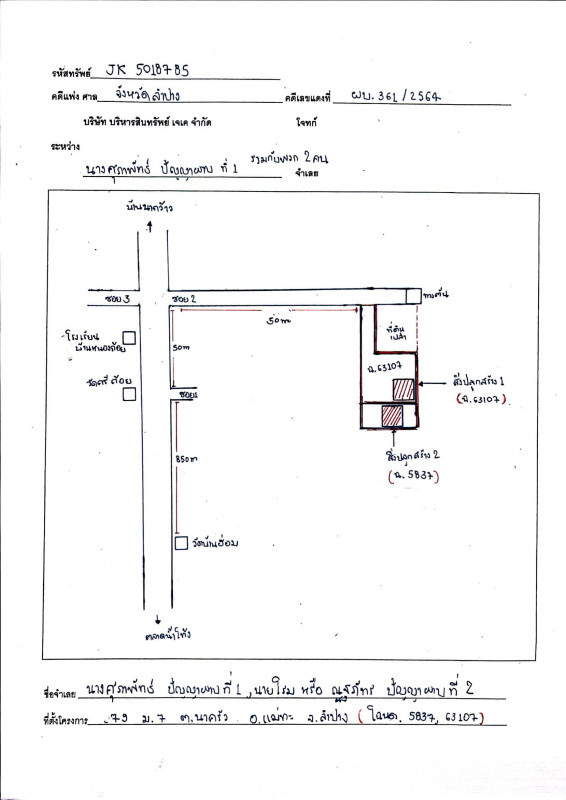 รหัสทรัพย์ JK 5018785
คดีแพ่ง ศาล จังหวัดลำปาง คดีเลขแดงที่ ผบ. 361 / 2564
บริษัท บริหารสินทรัพย์ เจเค จำกัด โจทก์
ระหว่าง
นางศุภาพัทธ์ ปัญญาผาบ ที่ 1 รวมกับพวก 2 คน จำเลย
บ้านนาคว้าว
ซอย 3 ซอย 2 ทางตัน
50 m
โรงเรียน
บ้านหนองถ้อย
50 m
ที่ดิน
เปล่า
ฉ. 63107
วัดศรีถ้อย
ซอย 1
สิ่งปลูกสร้าง 1
(ฉ. 63107)
850 m
สิ่งปลูกสร้าง 2
(ฉ. 5837)
วัดบ้านฮ่อม
ตลาดน้ำโท้ง
ชื่อจำเลย นางศุภาพัทธ์ ปัญญาผาบ ที่ 1 , นายโรม หรือ ปัญญาผาบ ที่ 2
ที่ตั้งโครงการ 79 ม. 7 ต. นาครัว อ. แม่ทะ จ. ลำปาง (โฉนด. 5837, 63107)